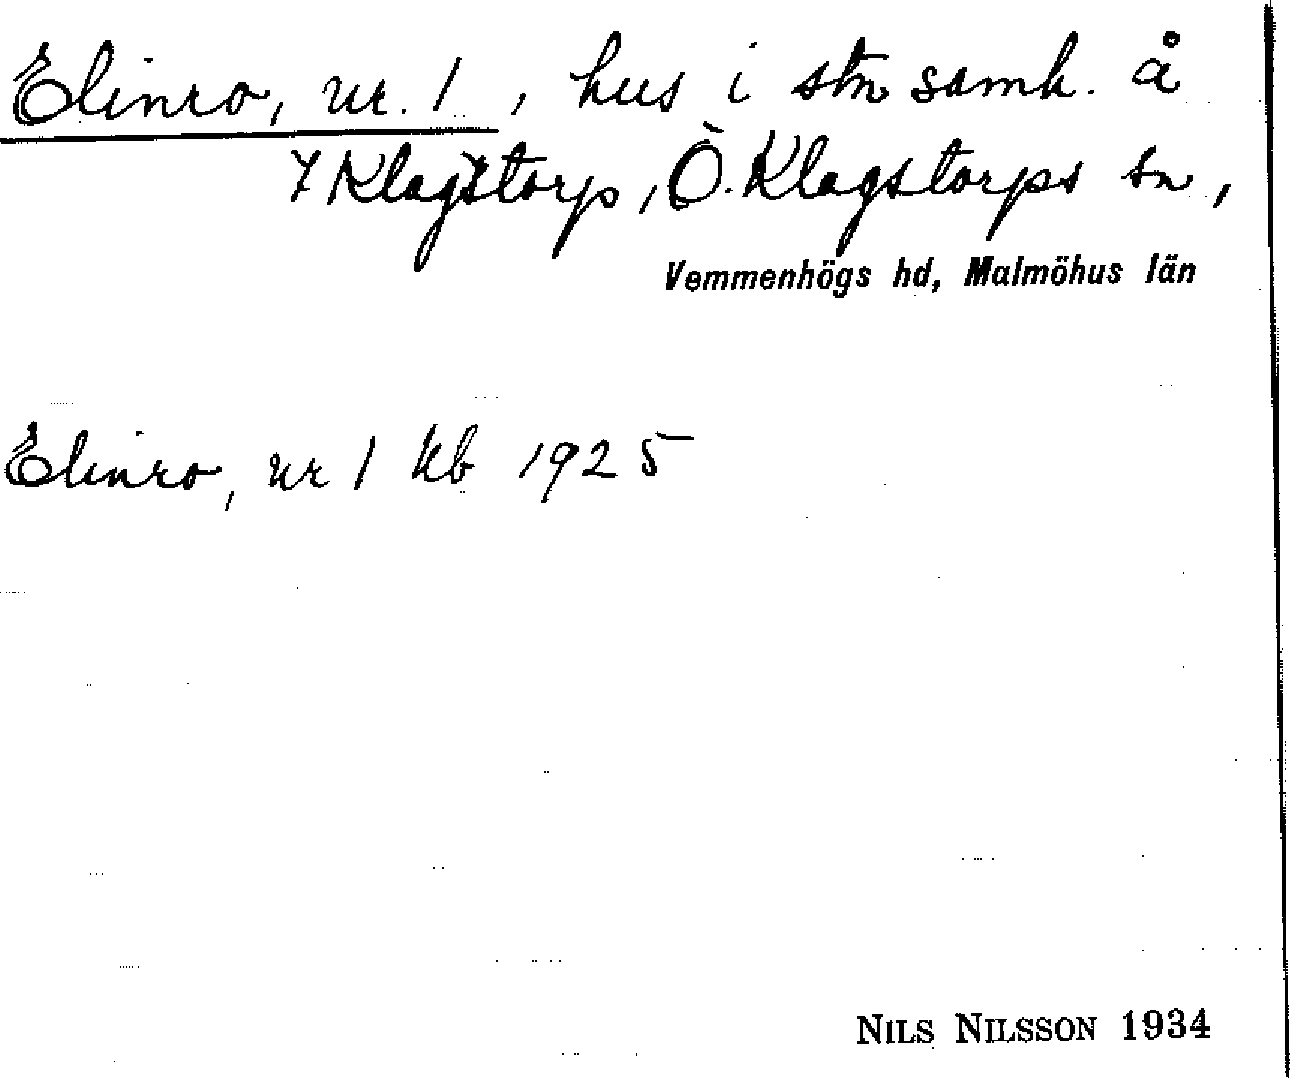 Elinro, nr. 1, hus i stn samh. å
7 Klagstorp, Ö. Klagstorps sn,
Vemmenhögs hd, Malmöhus län
Elinro, nr 1 kb 1925
NILS NILSSON 1934